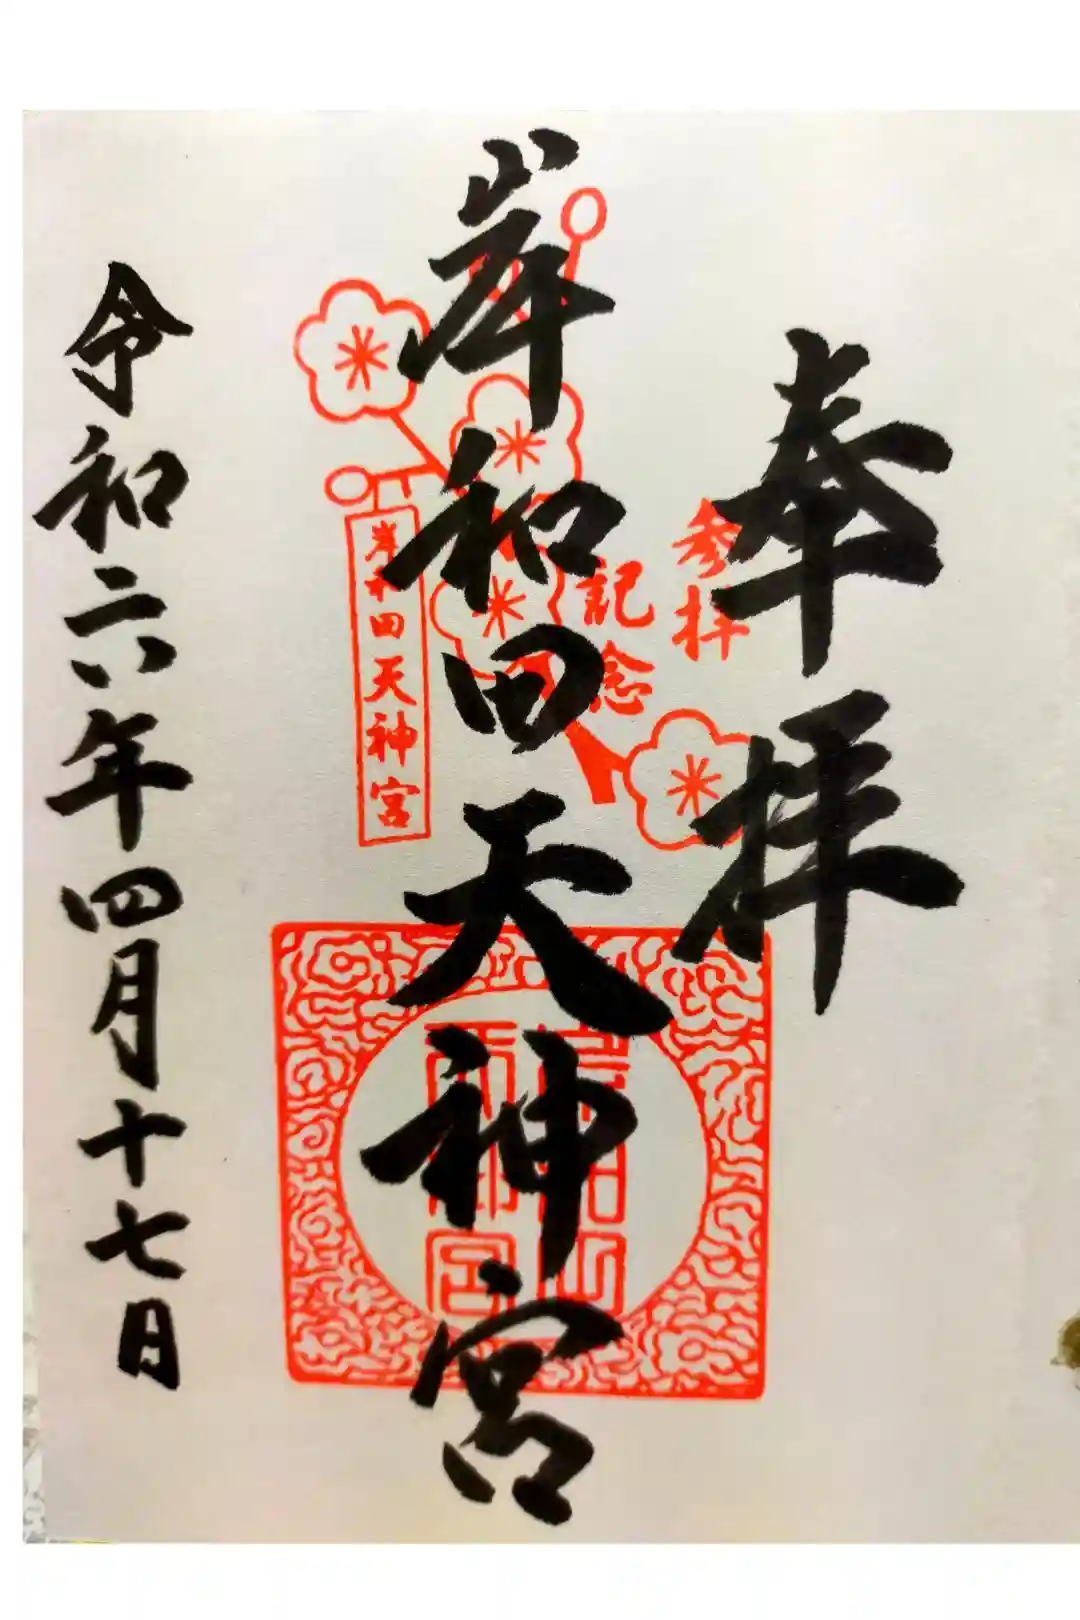 奉拝
参拝
記念
岸和田天神宮
岸和田天神宮
令和六年四月十七日